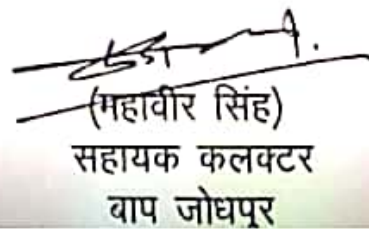 (महावीर सिंह)
सहायक कलक्टर
बाप जोधपुर